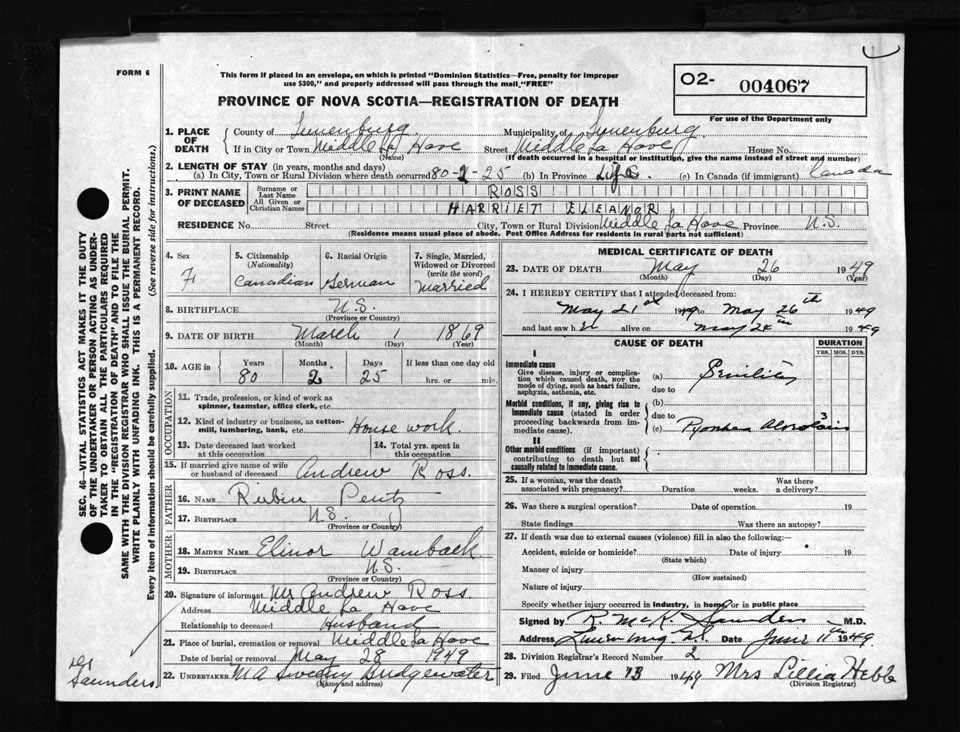 FORM 6
This form if placed in an envelope, on which is printed "Dominion Statistics—Free, penalty for improper
use $300," and properly addressed will pass through the mail "FREE"
PROVINCE OF NOVA SCOTIA—REGISTRATION OF DEATH
O2- 004067
For use of the Department only
1. PLACE OF DEATH
County of Lunenburg Municipality of Lunenburg
If in City or Town Middle La Have Street Middle La Have House No.
(Name) (If death occurred in a hospital or institution, give the name instead of street and number)
2. LENGTH OF STAY (in years, months and days)
(a) In City, Town or Rural Division where death occurred 80-2-25 (b) In Province Life. (c) In Canada (if immigrant) Canada
3. PRINT NAME OF DECEASED
Surname or Last Name ROSS
All Given or Christian Names HARRIET ELEANOR
RESIDENCE No. Street City, Town or Rural Division Middle La Have Province N.S.
(Residence means usual place of abode. Post Office Address for residents in rural parts not sufficient)
4. Sex F
5. Citizenship (Nationality) Canadian
6. Racial Origin German
7. Single, Married, Widowed or Divorced (write the word) Married
8. BIRTHPLACE N.S.
(Province or Country)
9. DATE OF BIRTH March 1 1869
(Month) (Day) (Year)
10. AGE in Years 80 Months 2 Days 25 If less than one day old hrs. or min.
OCCUPATION
11. Trade, profession, or kind of work as
spinner, teamster, office clerk, etc.
12. Kind of industry or business, as cotton-
mill, lumbering, bank, etc. House work
13. Date deceased last worked at this occupation
14. Total yrs. spent in this occupation
15. If married give name of wife
or husband of deceased Andrew Ross.
FATHER
16. NAME Rubin Pentz
17. BIRTHPLACE N.S.
(Province or Country)
MOTHER
18. MAIDEN NAME Elinor Wamback
19. BIRTHPLACE N.S.
(Province or Country)
20. Signature of informant Mr Andrew Ross
Address Middle La Have
Relationship to deceased Husband
21. Place of burial, cremation or removal Middle La Have
Date of burial or removal May 28 1949
22. UNDERTAKER M A Sweeny Bridgewater
(Name and address)
MEDICAL CERTIFICATE OF DEATH
23. DATE OF DEATH May 26 1949
(Month) (Day) (Year)
24. I HEREBY CERTIFY that I attended deceased from:
May 21st 1949 to May 26th 1949
and last saw h er alive on May 24th 1949
CAUSE OF DEATH
DURATION
YRS. MOS. DYS.
I
Immediate cause
Give disease, injury or complica-
tion which caused death, NOT the
mode of dying, such as heart failure,
asphyxia, asthenia, etc.
(a) Senility
due to
Morbid conditions, if any, giving rise to
immediate cause (stated in order
proceeding backwards from im-
mediate cause).
(b)
due to
(c) 3
II
Other morbid conditions (if important)
contributing to death but not
causally related to immediate cause.
25. If a woman, was the death
associated with pregnancy? Duration weeks. Was there a delivery?
26. Was there a surgical operation? Date of operation 19
State findings Was there an autopsy?
27. If death was due to external causes (violence) fill in also the following:—
Accident, suicide or homicide? Date of injury 19
(State which)
Manner of injury
(How sustained)
Nature of injury
Specify whether injury occurred in industry, in home or in public place
Signed by R. McK. Saunders M.D.
Address Date June 11th 1949
28. Division Registrar's Record Number 2
29. Filed June 13 1949 Mrs Lillia Hebb
(Division Registrar)
SEC. 46—VITAL STATISTICS ACT MAKES IT THE DUTY
OF THE UNDERTAKER OR PERSON ACTING AS UNDER-
TAKER TO OBTAIN ALL THE PARTICULARS REQUIRED
IN THE "REGISTRATION OF DEATH" AND TO FILE THE
SAME WITH THE DIVISION REGISTRAR WHO SHALL ISSUE THE BURIAL PERMIT.
WRITE PLAINLY WITH UNFADING INK. THIS IS A PERMANENT RECORD.
Every item of information should be carefully supplied. (See reverse side for instructions.)
Dr
Saunders